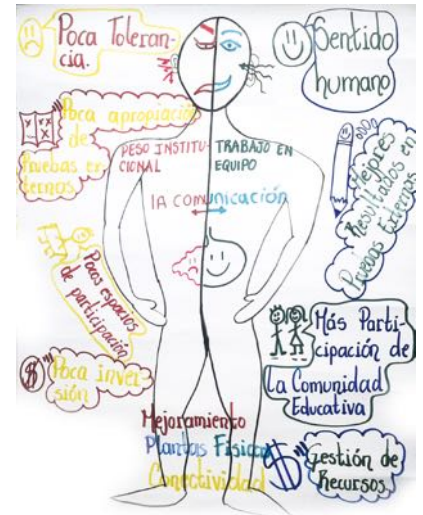 Poca Toleran-
cia.
Sentido
humano
Poca apropiación
de
Pruebas ex-
ternas
PESO INSTITU-
CIONAL
TRABAJO EN
EQUIPO
lA comunicación
Mejores
Resultados en
Pruebas Externas
Pocos espacios
de participación
Más Parti-
cipación de
La Comunidad
Educativa
Poca inver-
sión
$
Mejoramiento
Plantas Físicas
Conectividad
$
Gestión de
Recursos.